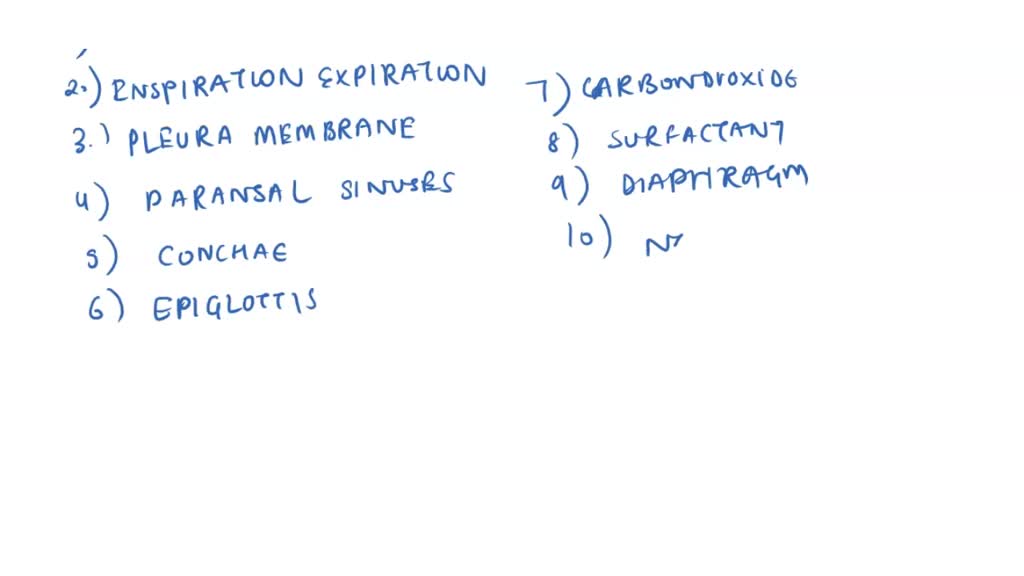 2.) ENSPIRATION EXPIRATION
3.) PLEURA MEMBRANE
4) PARANSAL SINUSES
5) CONCHAE
6) EPIGLOTTIS
7) CARBONDIOXIDE
8) SURFACTANT
9) DIAPHRAGM
10)